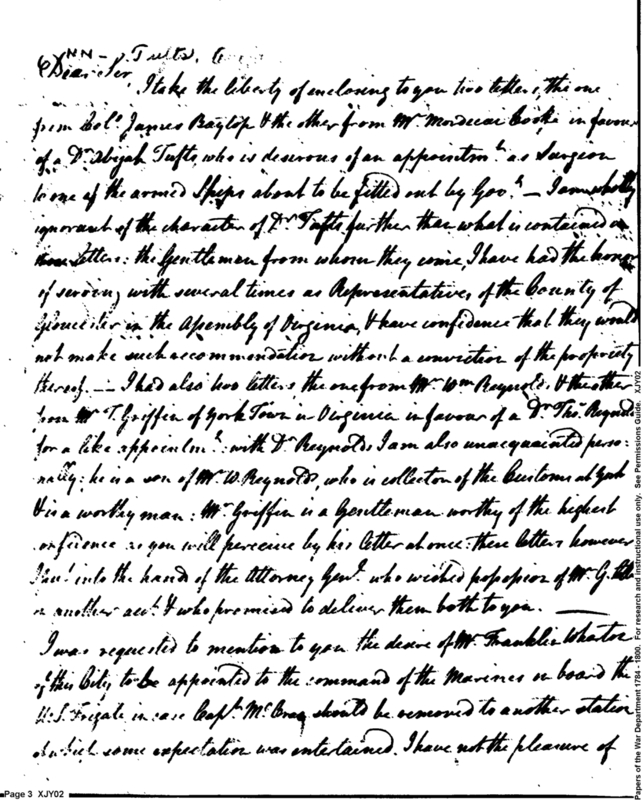 NN - Tufts,
Dear Sir,
I take the liberty of enclosing to you two letters, the one
from Colo. James Baytop & the other from Mr. Mordecai Cooke in favour
of a Dr. Abijah Tufts, who is desirous of an appointmt. as Surgeon
to one of the armed Ships about to be fitted out by Govt. — I am wholly
ignorant of the character of Dr. Tufts further than what is contained in
Letters: the Gentlemen from whom they come, I have had the honor
of serving with several times as Representatives of the County of
Gloucester in the Assembly of Virginia, & have confidence that they would
not make such accommendation without a conviction of the propriety
thereof. — I had also two letters the one from Mr. Wm. Reynolds & the other
from Mr. T. Griffin of York Town in Virginia in favour of a Dr. Thos. Reynolds
for a like appointmt.: with Dr. Reynolds I am also unacquainted perso-
nally: he is a son of Mr. W. Reynolds, who is collector of the Customs at York
& is a worthy man: Mr. Griffin is a Gentleman worthy of the highest
confidence as you will perceive by his letter at once: these letters however
I put into the hands of the Attorney Genl. who wished possession of Mr. G.
on another acct. & who promised to deliver them both to you. —
I was requested to mention to you the desire of Mr. Franklin Wharton
of this City to be appointed to the command of the Marines on board the
U.S. Frigate in case Capt. McCrea should be removed to another station
of which some expectation was entertained. I have not the pleasure of
Page 3 XJY02
Papers of the War Department 1784 - 1800. For research and instructional use only. See Permissions Guide. XJY02